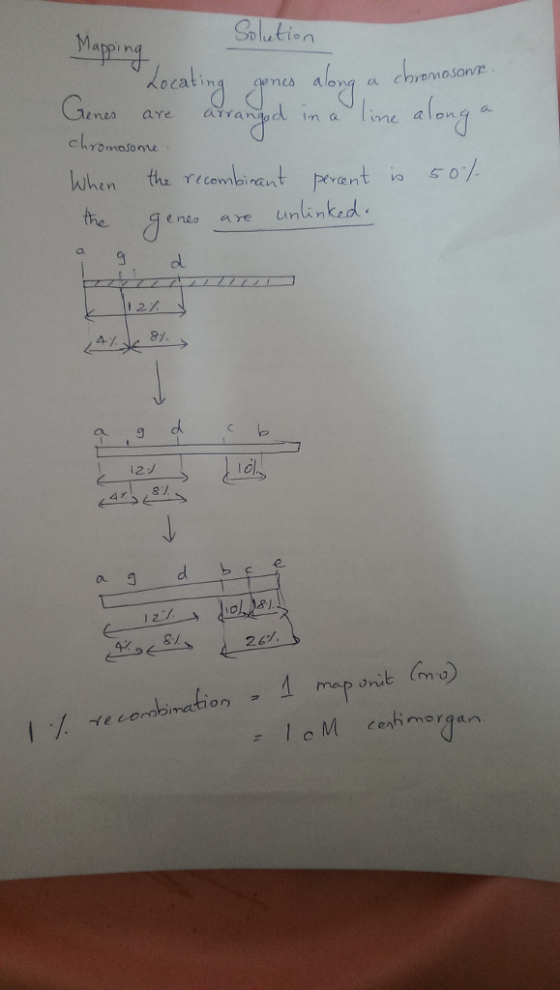 Solution
Mapping
Locating genes along a chromosome.
Genes are arranged in a line along a
chromosome.
When the recombinant percent is 50%
the genes are unlinked.
a g d
12%
4% 8%
a g d c b
12% 10%
4% 8%
a g d b c e
12% 10% 8%
4% 8% 26%
1% recombination = 1 map unit (m.u)
= 1 cM centimorgan.